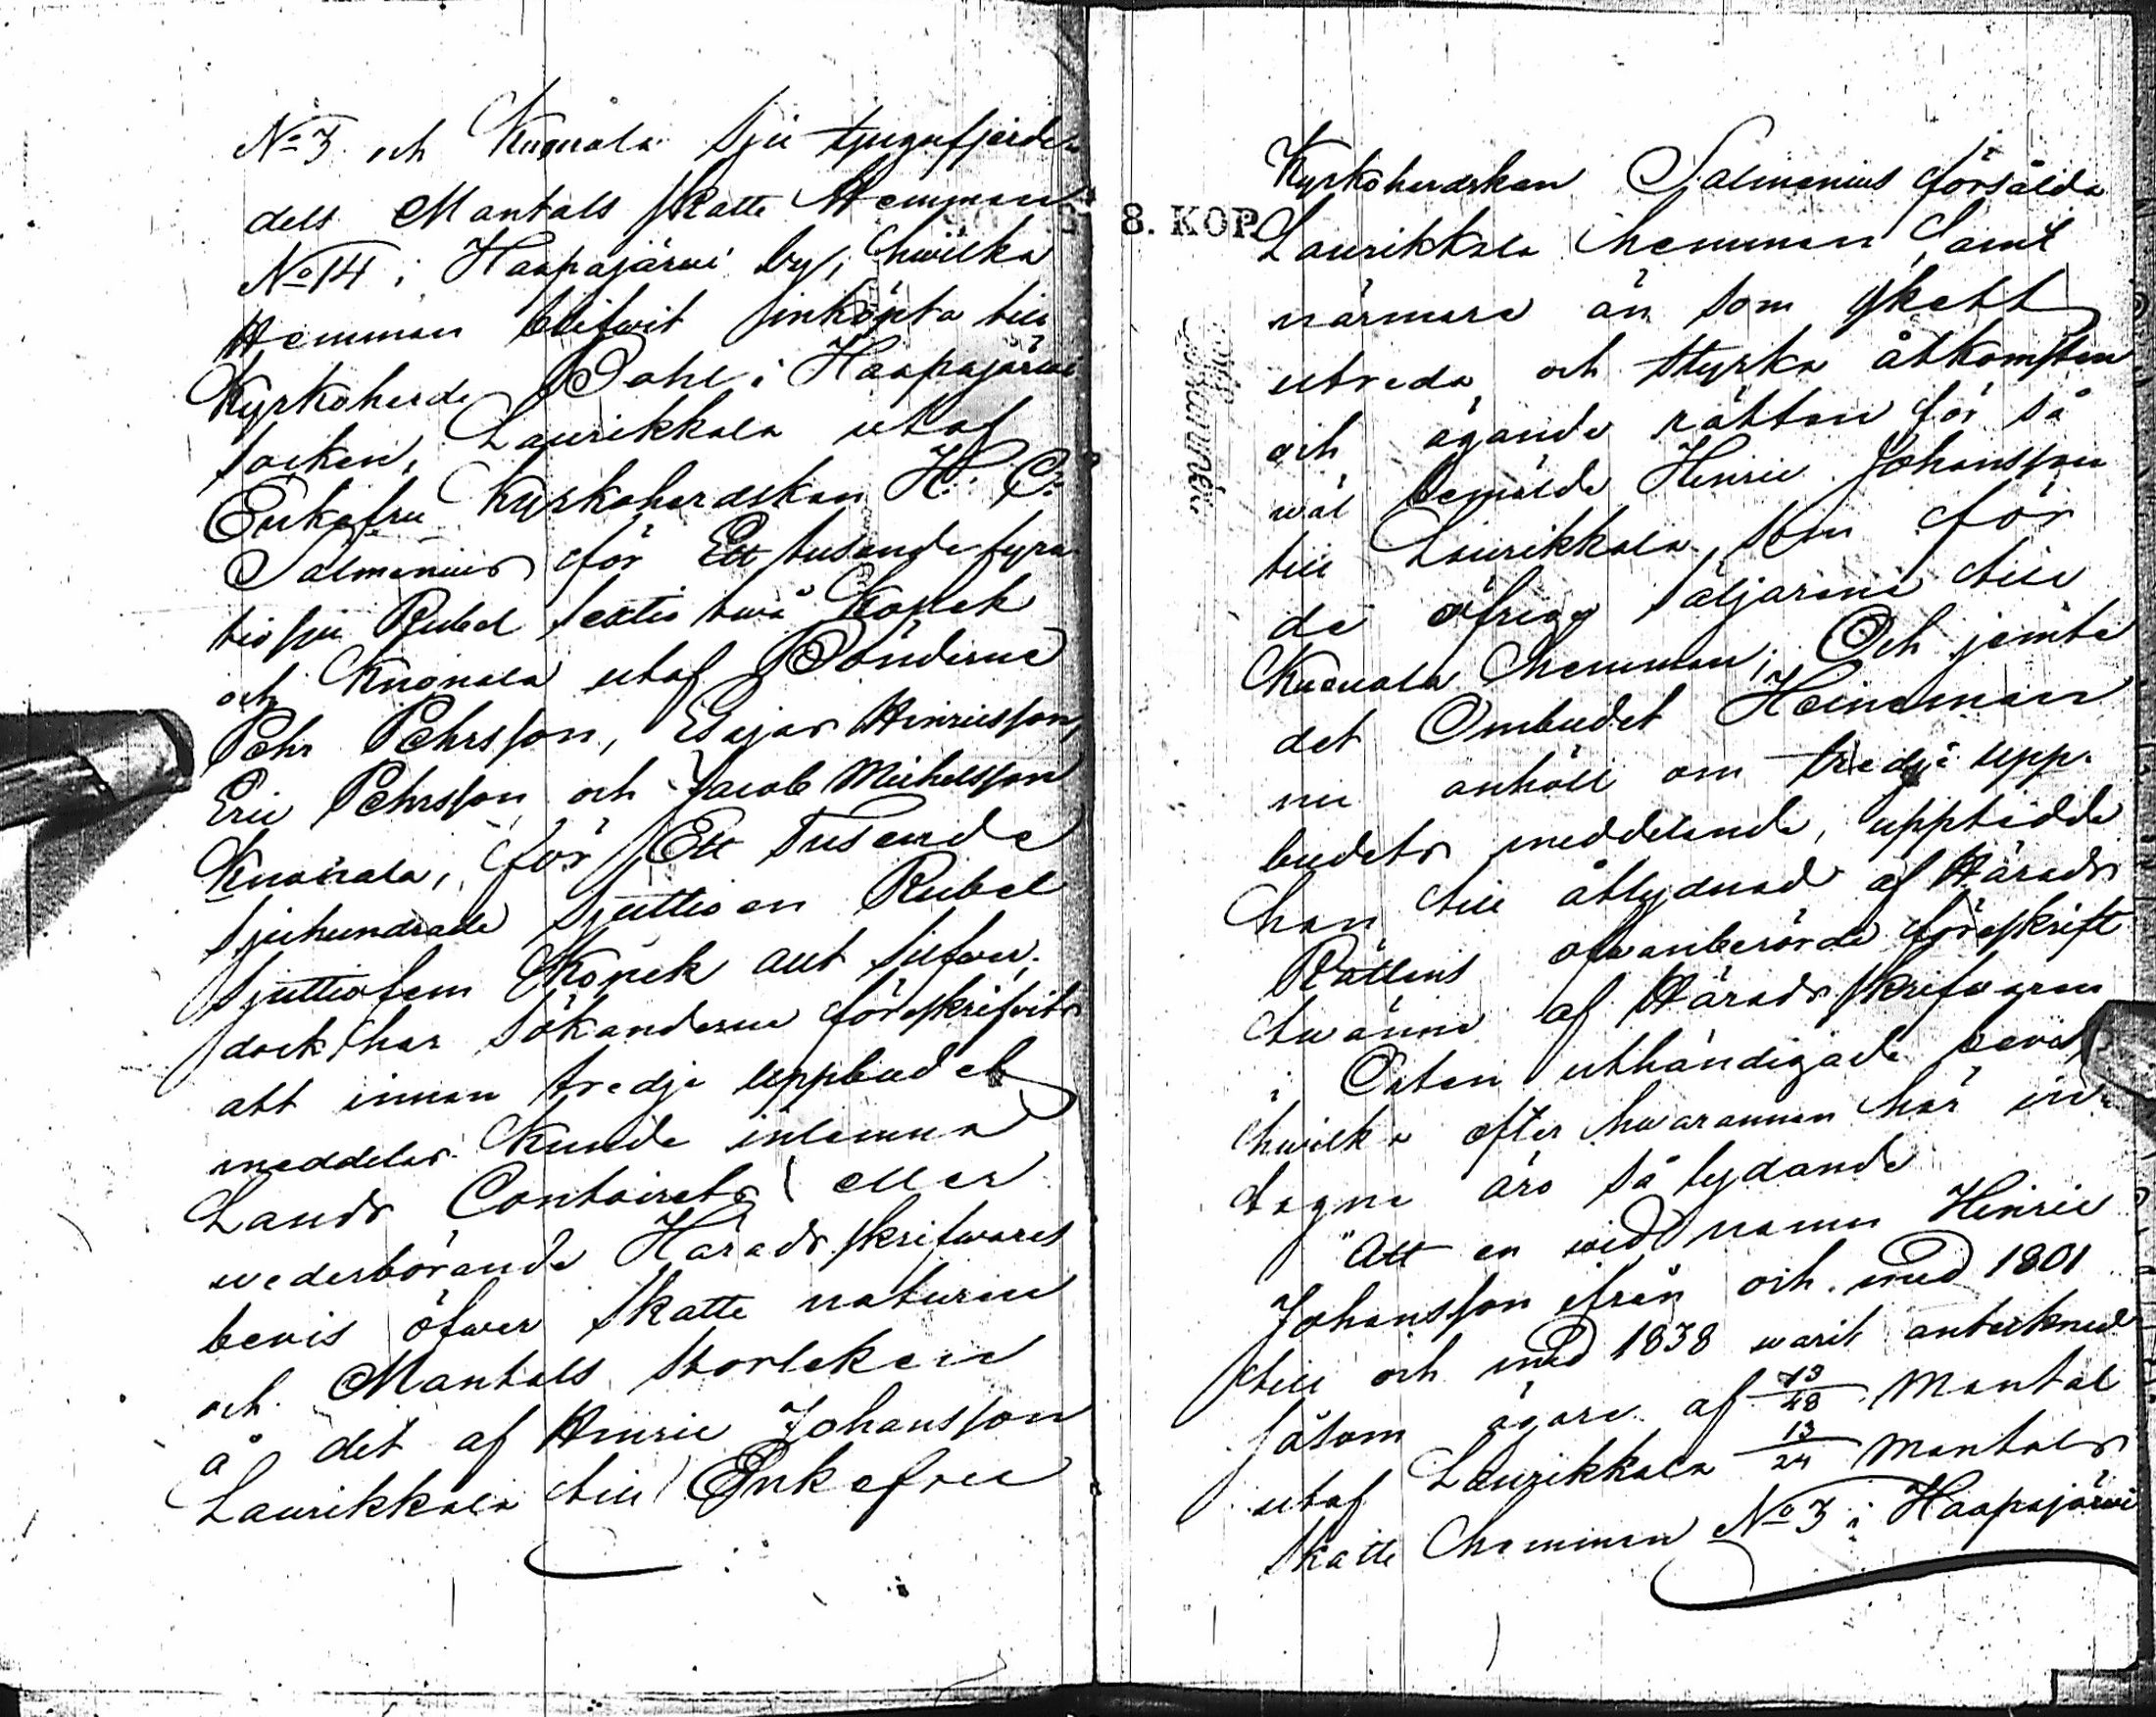 No 3 och Kuonala sju tjugufjerde
dels Mantals skatte Hemman
No 14 i Haapajärwi by, hwilka
Hemman blifwit inköpta till
Kyrkoherde Pohl i Haapajärwi
socken, Laurikkala utaf
Enkefru Kyrkoherdskan H: C:
Salmenius för Ett tusende fyra
tio sju Rubel sextio twå Kopek
och Kuonala utaf Bönderne
Pehr Pehrsson, Esajas Hinricsson,
Eric Pehrsson och Jacob Michelsson
Kuonala, för Ett Tusende
sjuhundrade sjuttio en Rubel
sjuttiofem Kopek allt silfwer;
dock har sökanderne föreskrifvits
att innan tredje uppbudet
meddelas kunde inlemna
Lands Contoirets eller
wederbörande Härads skrifwares
bevis öfwer skatte naturen
och Mantals storleken
å det af Hinric Johansson
Laurikkala till Enkefru
8. KOP.
Kyrkoherdskan Salmenius försålda
Laurikkala hemman, samt
närmare än som skett
utreda och styrka åtkomsten
och ägande rätten för så
wäl bemälde Hinric Johansson
till Laurikkala, som för
de öfriga säljarene till
Kuonala hemman; Och jemte
det Ombudet Heineman
nu anhöll om tredje upp-
budets meddelande, uppteedde
han till åtlydnad af Härads
Rättens ofwanberörde föreskrift
twänne af Härads skrifwaren
i Orten uthändigade bevis
hwilka efter hwarannan här in
tagne äro så lydande
"Att en wid namn Hinric
Johansson ifrån och med 1801
till och med 1838 warit antecknad
såsom ägare af 13/48 Mantal
utaf Laurikkala 13/24 Mantals
skatte hemman No 3 i Haapajärwi